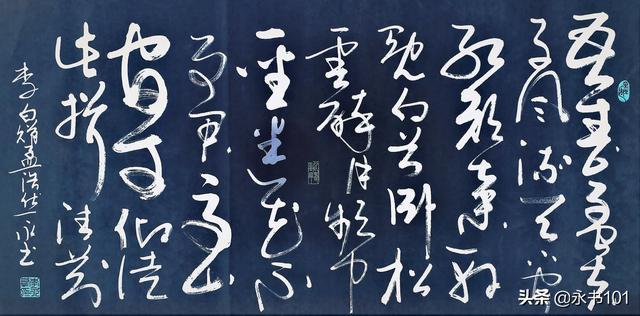 吾爱孟夫
子风流天下闻
红颜弃轩
冕白首卧松
雲醉月频中
圣迷花不
事君高山
安可仰徒
此揖清芬
李白赠孟浩然 永书
头条 @永书101